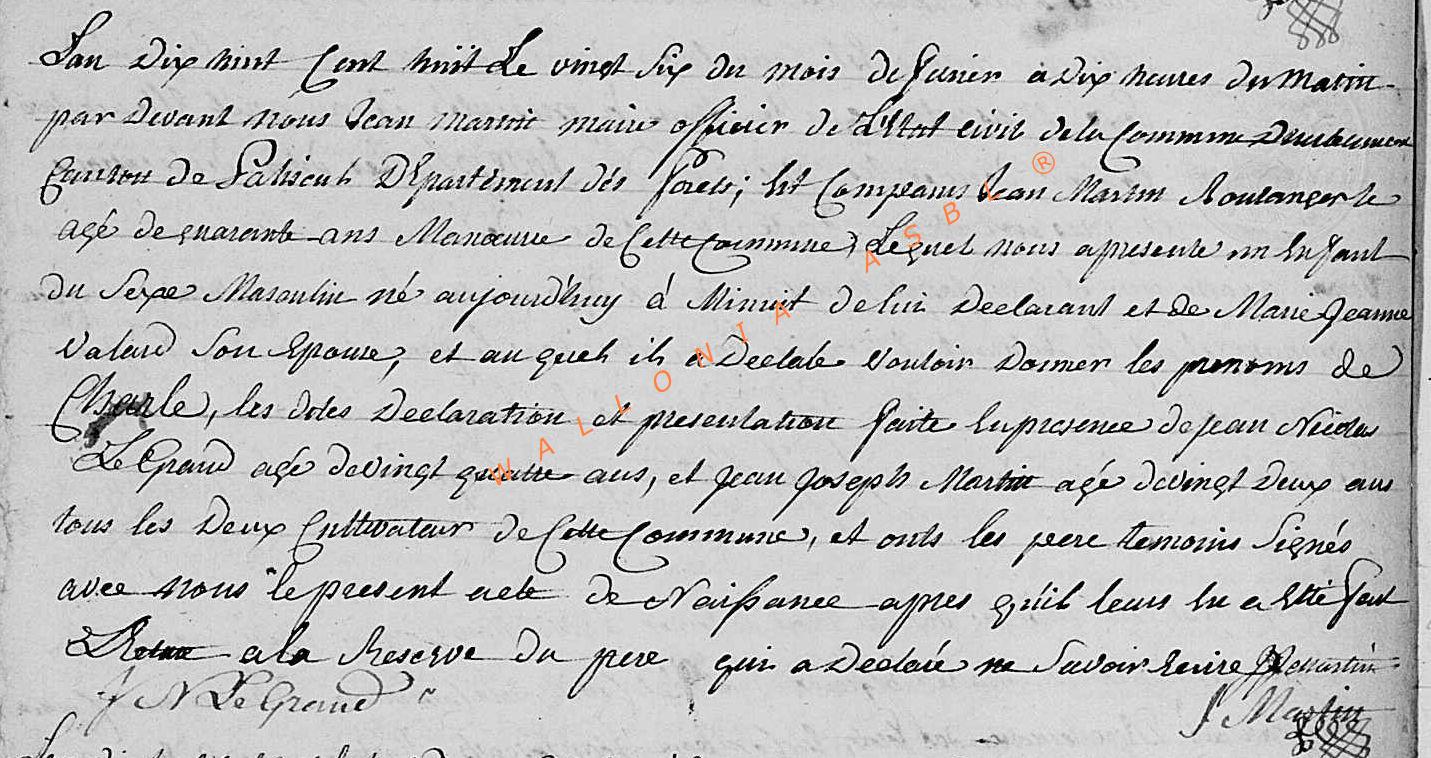 Lan Dix huit Cent huit Le vingt Six du mois de fevrier a Dix heures du Matin
par Devant nous Jean Martin maire officier de L'Etat Civil de la Commune
Canton de Paliseul DEpartement dés forets; Est Comparus Jean Martin Boulanger le
agé de quarante ans Manœuvre de Cette Commune, Lequel nous apresente un Enfant
du Sexe Masculin né aujourd'huy á Minuit de lui Declarant et de Marie Jeanne
Valard Son Epouse, et au quel il a Declale vouloir Donner les prenoms de
Charle, les dites Declaration et presentation faite En presence de Jean Nicolas
Le Grand agé de vingt quatre ans, et Jean Joseph Martin agé de vingt Deux ans
tous les Deux Cultivateur de Cette Commune, et onts les pere temoins Signés
avec nous le present acte de Naissance apres qu'il leurs En a Etté fait
a la Reserve du pere qui a Declaré ne Savoir Ecrire JJ Martin
J N Le Grand
J Martin
WALLONIA ASBL ®